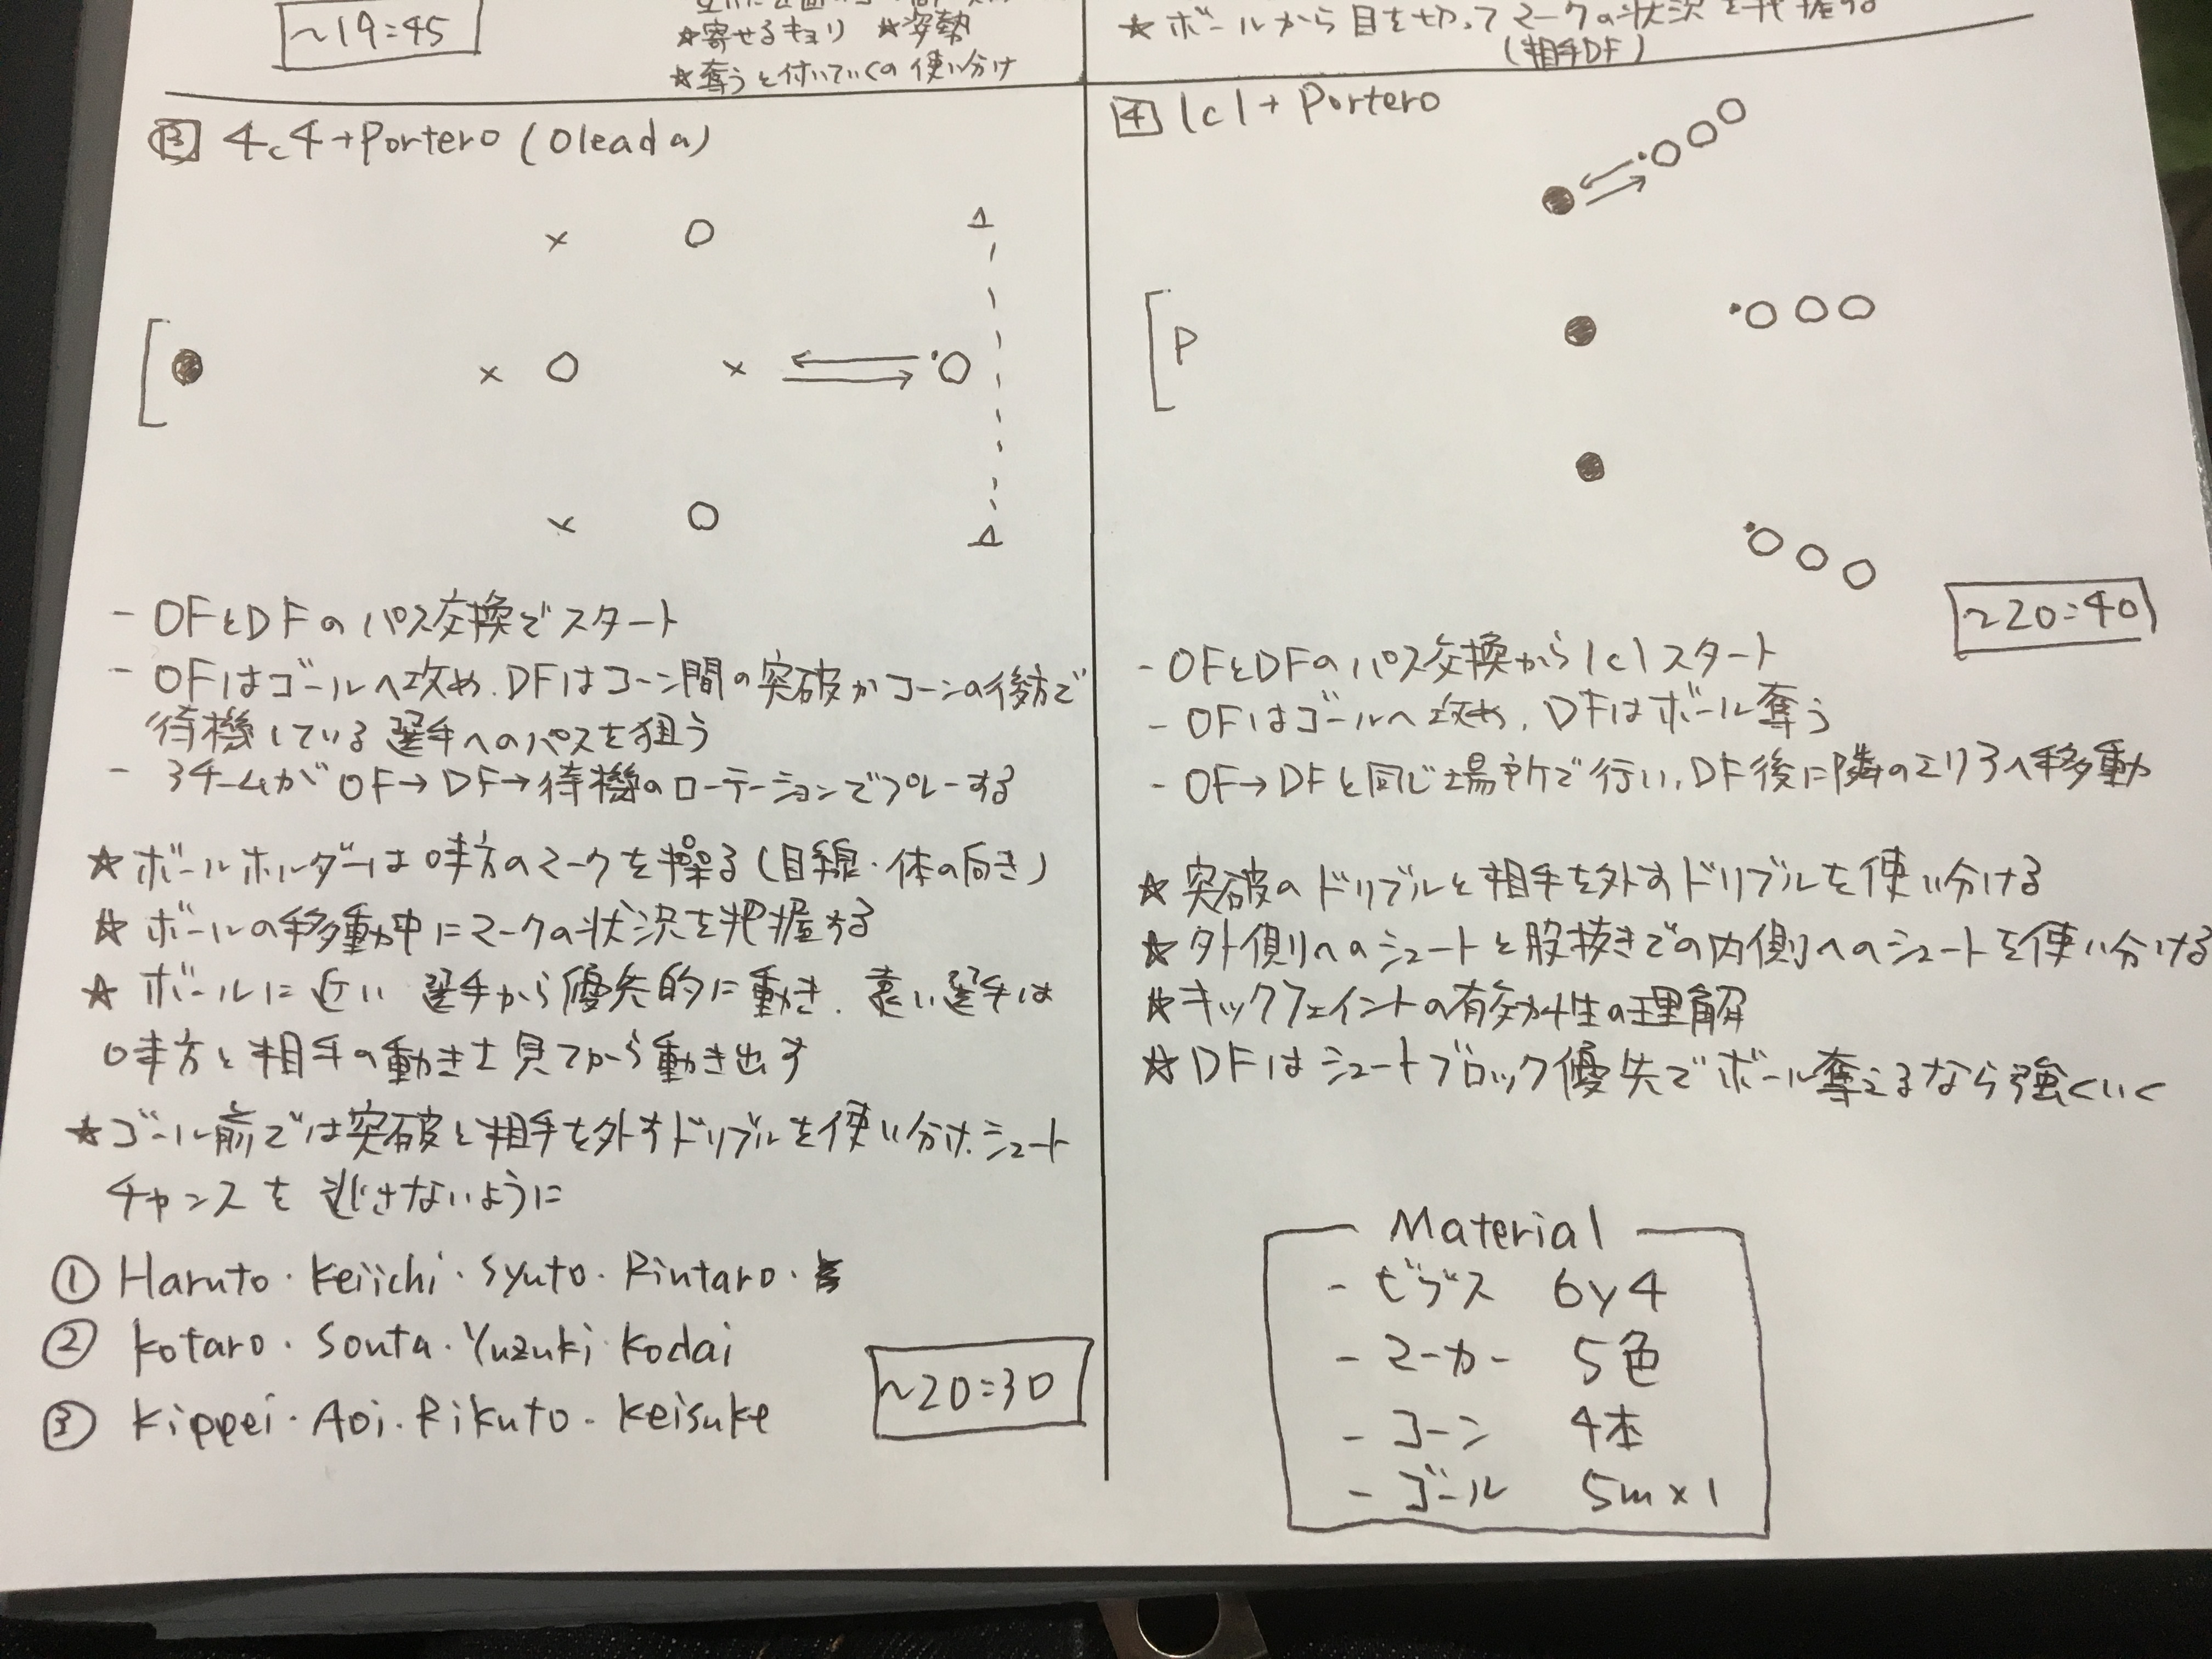 ~19:45
★寄せるキョリ ★姿勢
★奪うと付いていくの使い分け
★ボールから目を切ってマークの状況を把握する
(相手DF)
3 4c4+Portero (Oleada)
- OFとDFのパス交換でスタート
- OFはゴールへ攻め、DFはコーン間の突破かコーンの後方で
待機している選手へのパスを狙う
- 3チームがOF→DF→待機のローテーションでプレーする
★ボールホルダーは味方のマークを操る(目線・体の向き)
★ボールの移動中にマークの状況を把握する
★ボールに近い選手から優先的に動き、遠い選手は
味方と相手の動きを見てから動き出す
★ゴール前では突破と相手を外すドリブルを使い分け、シュート
チャンスを逃さないように
① Haruto・Keiichi・Syuto・Rintaro・
② Kotaro・Souta・Yuzuki・Kodai
③ Kippei・Aoi・Rikuto・Keisuke
~20:30
4 1c1+Portero
P
~20:40
- OFとDFのパス交換から1c1スタート
- OFはゴールへ攻め、DFはボール奪う
- OF→DFと同じ場所で行い、DF後に隣のエリアへ移動
★突破のドリブルと相手を外すドリブルを使い分ける
★外側へのシュートと股抜きでの内側へのシュートを使い分ける
★キックフェイントの有効性の理解
★DFはシュートブロック優先でボール奪えるなら強くいく
Material
- ビブス 6y4
- マーカー 5色
- コーン 4本
- ゴール 5m×1